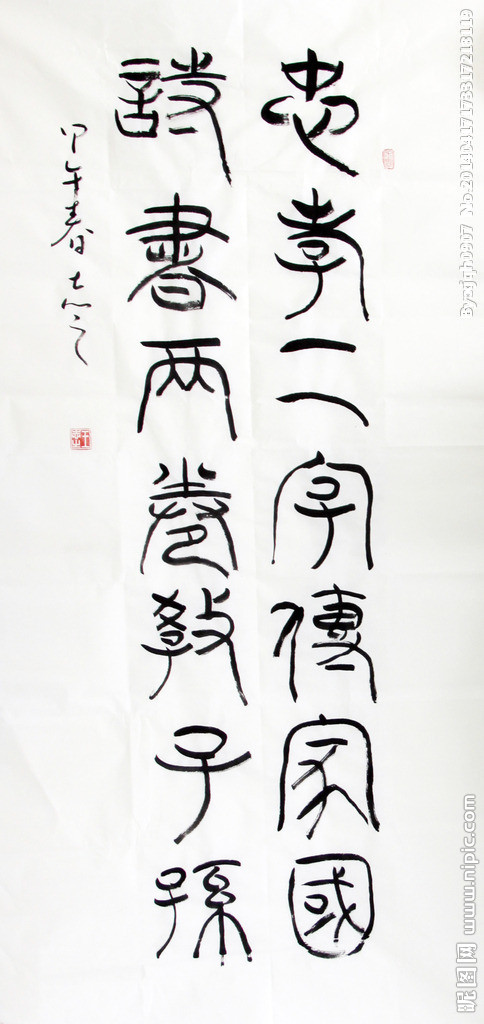 忠孝二字傳家國
詩書兩卷教子孫
甲午春
By:zjqh0917 No:20141417178317218119
昵图网 www.nipic.com